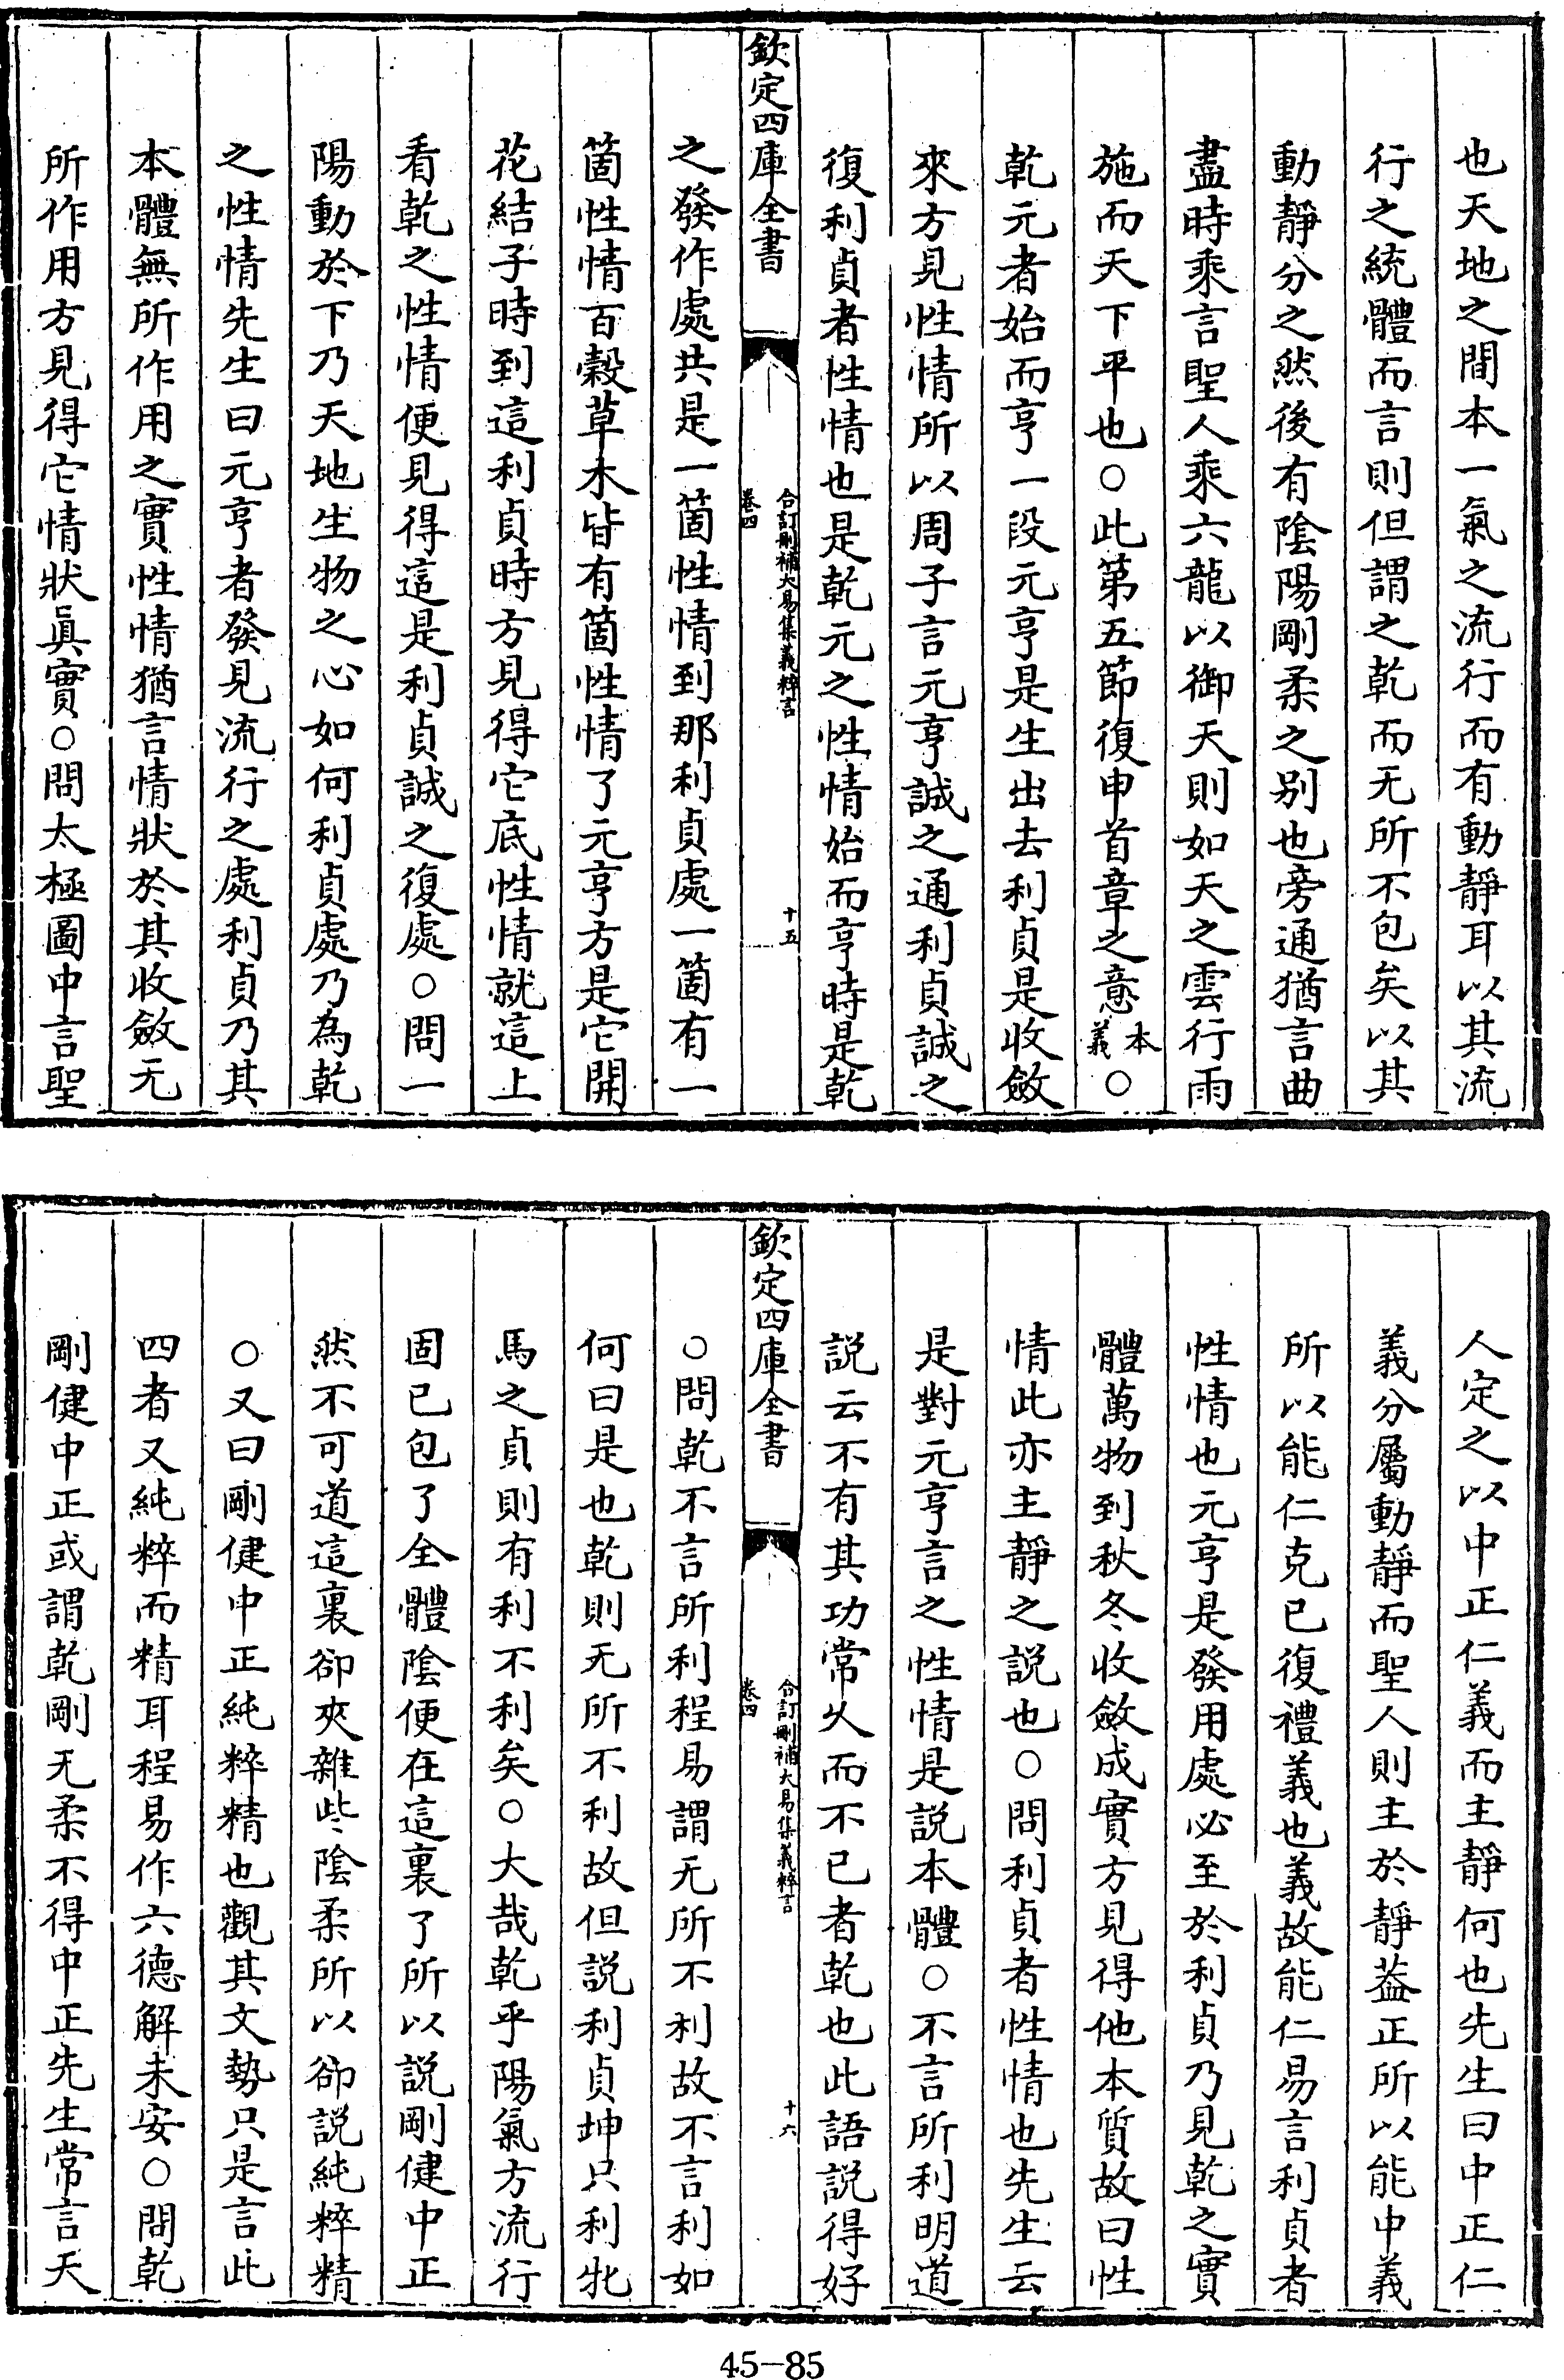 也天地之間本一氣之流行而有動靜耳以其流
行之統體而言則但謂之乾而无所不包矣以其
動靜分之然後有陰陽剛柔之别也旁通猶言曲
盡時乘言聖人乘六龍以御天則如天之雲行雨
施而天下平也○此第五節復申首章之意本義○
乾元者始而亨一段元亨是生出去利貞是收斂
來方見性情所以周子言元亨誠之通利貞誠之
復利貞者性情也是乾元之性情始而亨時是乾
欽定四庫全書
合訂刪補大易集義粹言
卷四
十五
之發作處共是一箇性情到那利貞處一箇有一
箇性情百穀草木皆有箇性情了元亨方是它開
花結子時到這利貞時方見得它底性情就這上
看乾之性情便見得這是利貞誠之復處○問一
陽動於下乃天地生物之心如何利貞處乃為乾
之性情先生曰元亨者發見流行之處利貞乃其
本體無所作用之實性情猶言情狀於其收斂无
所作用方見得它情狀眞實○問太極圖中言聖
人定之以中正仁義而主靜何也先生曰中正仁
義分屬動靜而聖人則主於靜葢正所以能中義
所以能仁克已復禮義也義故能仁易言利貞者
性情也元亨是發用處必至於利貞乃見乾之實
體萬物到秋冬收斂成實方見得他本質故曰性
情此亦主靜之説也○問利貞者性情也先生云
是對元亨言之性情是説本體○不言所利明道
説云不有其功常乆而不已者乾也此語説得好
欽定四庫全書
合訂刪補大易集義粹言
卷四
十六
○問乾不言所利程易謂无所不利故不言利如
何曰是也乾則无所不利故但説利貞坤只利牝
馬之貞則有利不利矣○大哉乾乎陽氣方流行
固已包了全體陰便在這裏了所以説剛健中正
然不可道這裏卻夾雜些陰柔所以卻説純粹精
○又曰剛健中正純粹精也觀其文勢只是言此
四者又純粹而精耳程易作六德解未安○問乾
剛健中正或謂乾剛无柔不得中正先生常言天
45-85